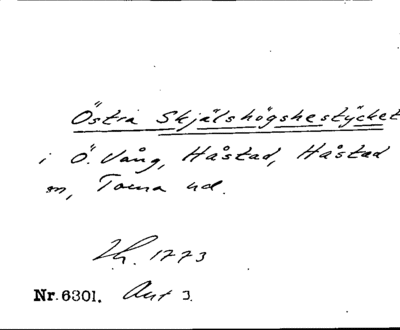 Östra Skjälshögshestycket
i Ö. Vång, Håstad, Håstad
Torna
1773
Nr. 6301.